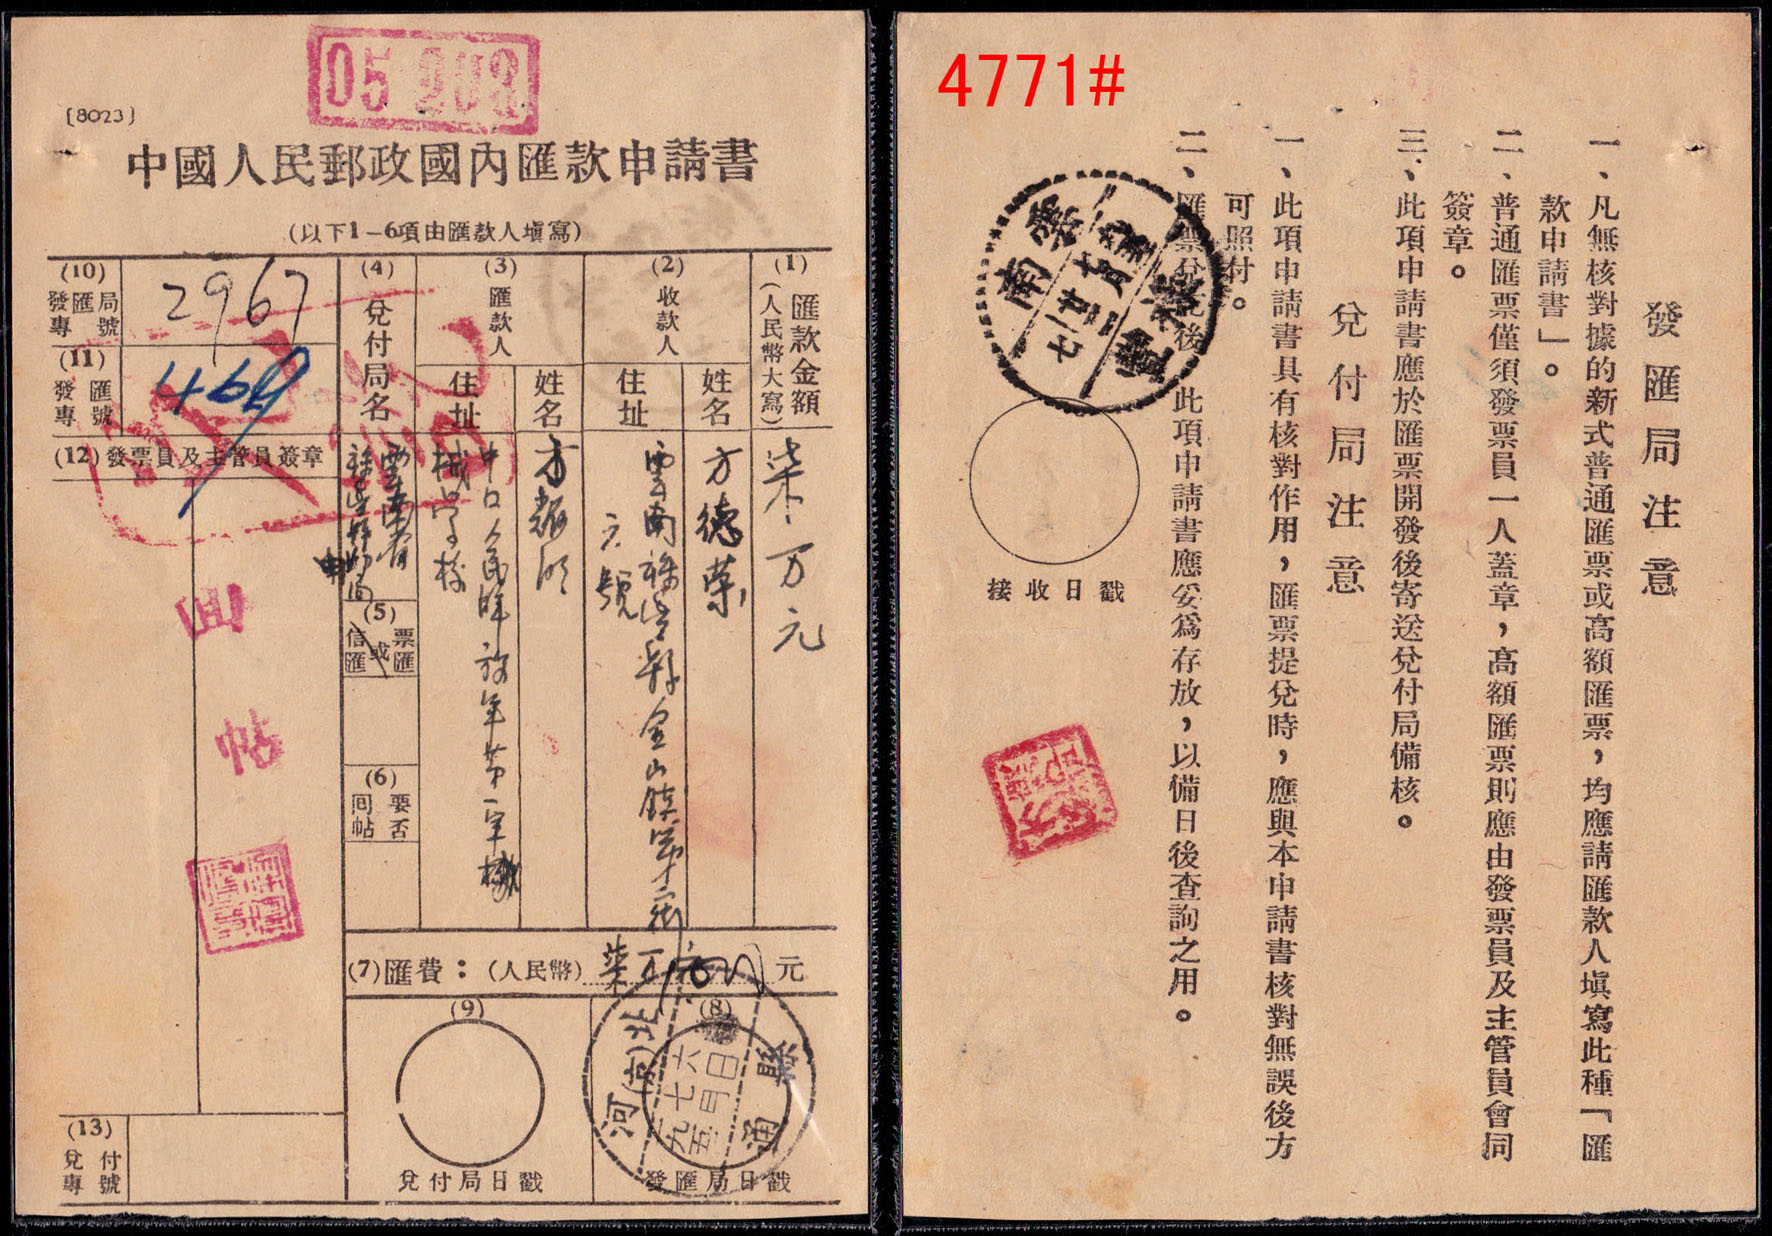 05 203
[8023]
中國人民郵政國內匯款申請書
(以下1-6項由匯款人塡寫)
(1)
匯款金額
(人民幣大寫)
柒万元
(2)
收款人
姓名
方德荣
住址
雲南祿豐县金山鎮第二街
六號
(3)
匯款人
姓名
住址
械学校
(4)
兌付局名
雲南省
(5)
票匯
或
信匯
(6)
要否
囘帖
(7)匯費：(人民幣)
元
(8)
發匯局日戳
河北
(京)
通縣
(9)
兌付局日戳
(10)
發匯局
專號
2967
(11)
發匯
專號
469
(12)發票員及主管員簽章
回帖
(13)
兌付
專號
4771#
發匯局注意
一、凡無核對據的新式普通匯票或高額匯票，均應請匯款人塡寫此種「匯
款申請書」。
二、普通匯票僅須發票員一人蓋章，高額匯票則應由發票員及主管員會同
簽章。
三、此項申請書應於匯票開發後寄送兌付局備核。
兌付局注意
一、此項申請書具有核對作用，匯票提兌時，應與本申請書核對無誤後方
可照付。
二、匯票兌訖後 此項申請書應妥爲存放，以備日後查詢之用。
雲南
祿豐
接收日戳